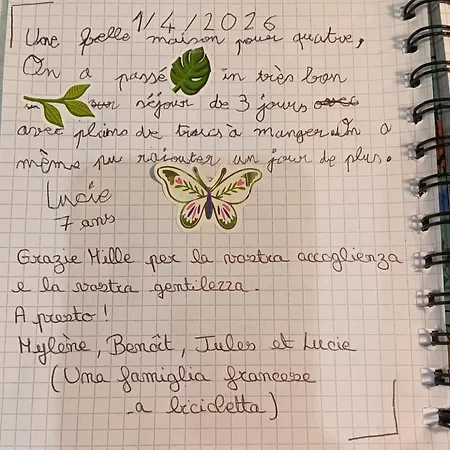 1/4/2026
Une belle maison pour quatre,
On a passé in très bon
séjour de 3 jours
avec plains de trucs à manger. On a
même pu rajouter un jour de plus.
Lucie
7 ans
Grazie Mille per la vostra accoglienza
e la vostra gentilezza.
A presto !
Mylène, Benoît, Jules et Lucie
(Una famiglia francese
a bicicletta)